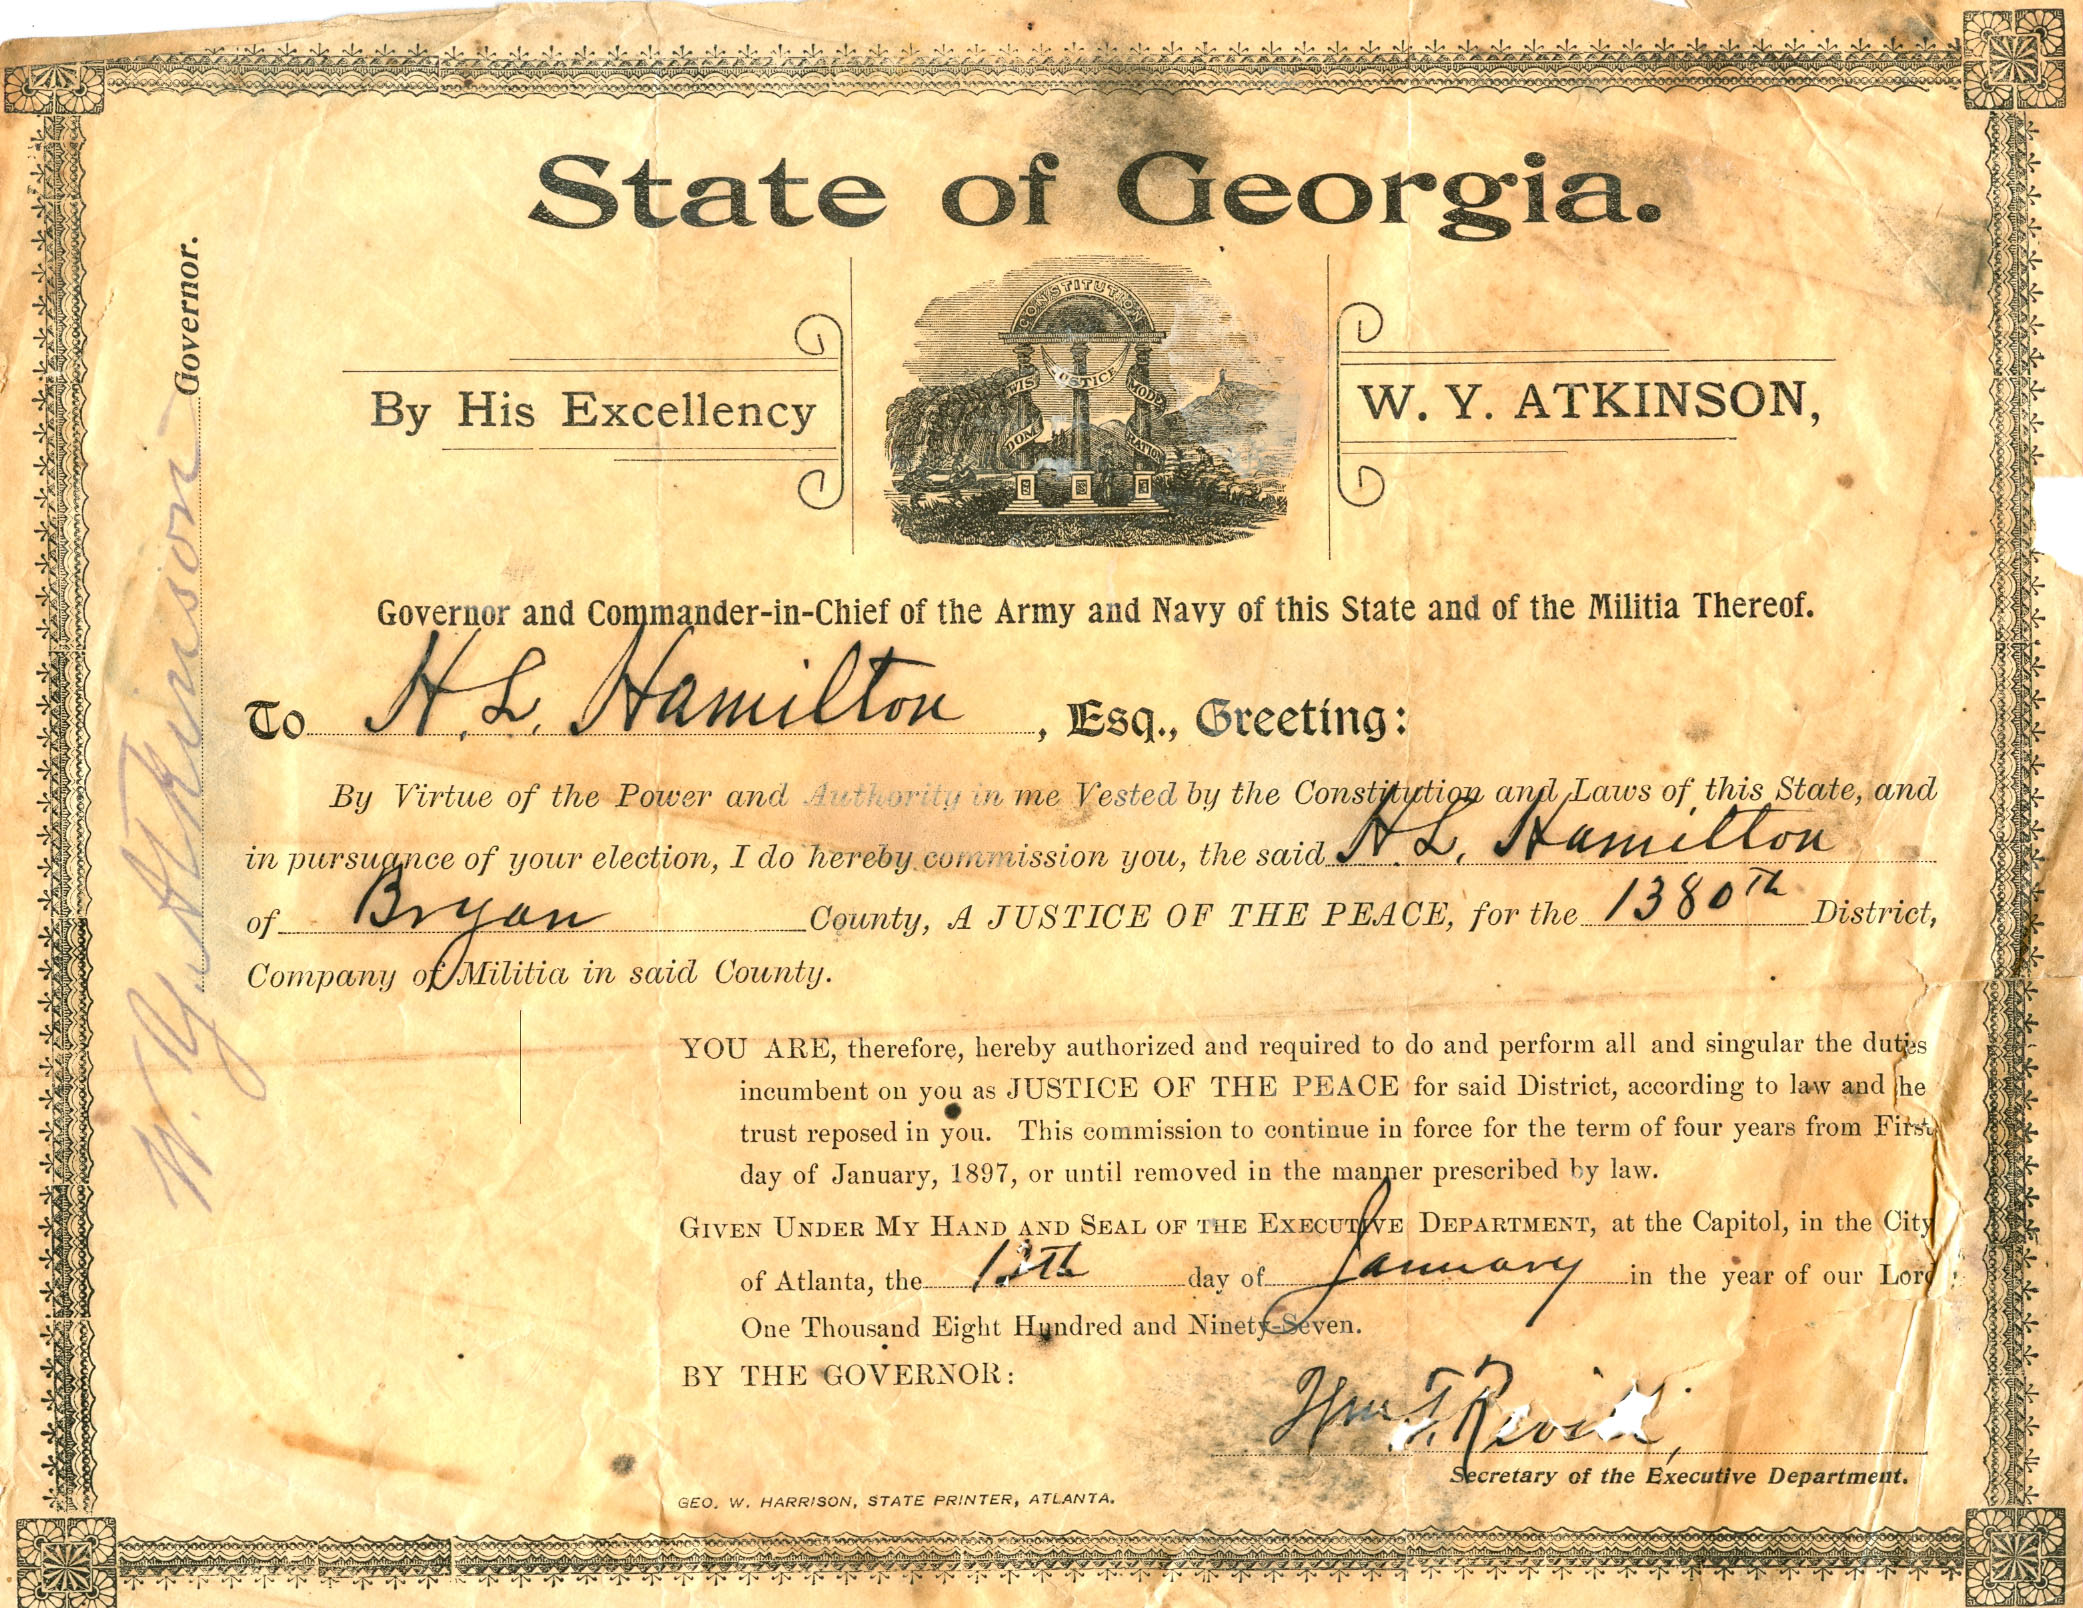 State of Georgia.
CONSTITUTION
WIS JUSTICE MODE
DOM RATION
By His Excellency W. Y. ATKINSON,
Governor and Commander-in-Chief of the Army and Navy of this State and of the Militia Thereof.
To H. L. Hamilton, Esq., Greeting:
By Virtue of the Power and Authority in me Vested by the Constitution and Laws of this State, and
in pursuance of your election, I do hereby commission you, the said H. L. Hamilton
of Bryan County, A JUSTICE OF THE PEACE, for the 1380th District,
Company of Militia in said County.
YOU ARE, therefore, hereby authorized and required to do and perform all and singular the duties
incumbent on you as JUSTICE OF THE PEACE for said District, according to law and he
trust reposed in you. This commission to continue in force for the term of four years from First
day of January, 1897, or until removed in the manner prescribed by law.
GIVEN UNDER MY HAND AND SEAL OF THE EXECUTIVE DEPARTMENT, at the Capitol, in the City
of Atlanta, the day of January in the year of our Lord
One Thousand Eight Hundred and Ninety-Seven.
BY THE GOVERNOR:
Wm. T. Revill,
Secretary of the Executive Department.
GEO. W. HARRISON, STATE PRINTER, ATLANTA.
W. Y. Atkinson Governor.